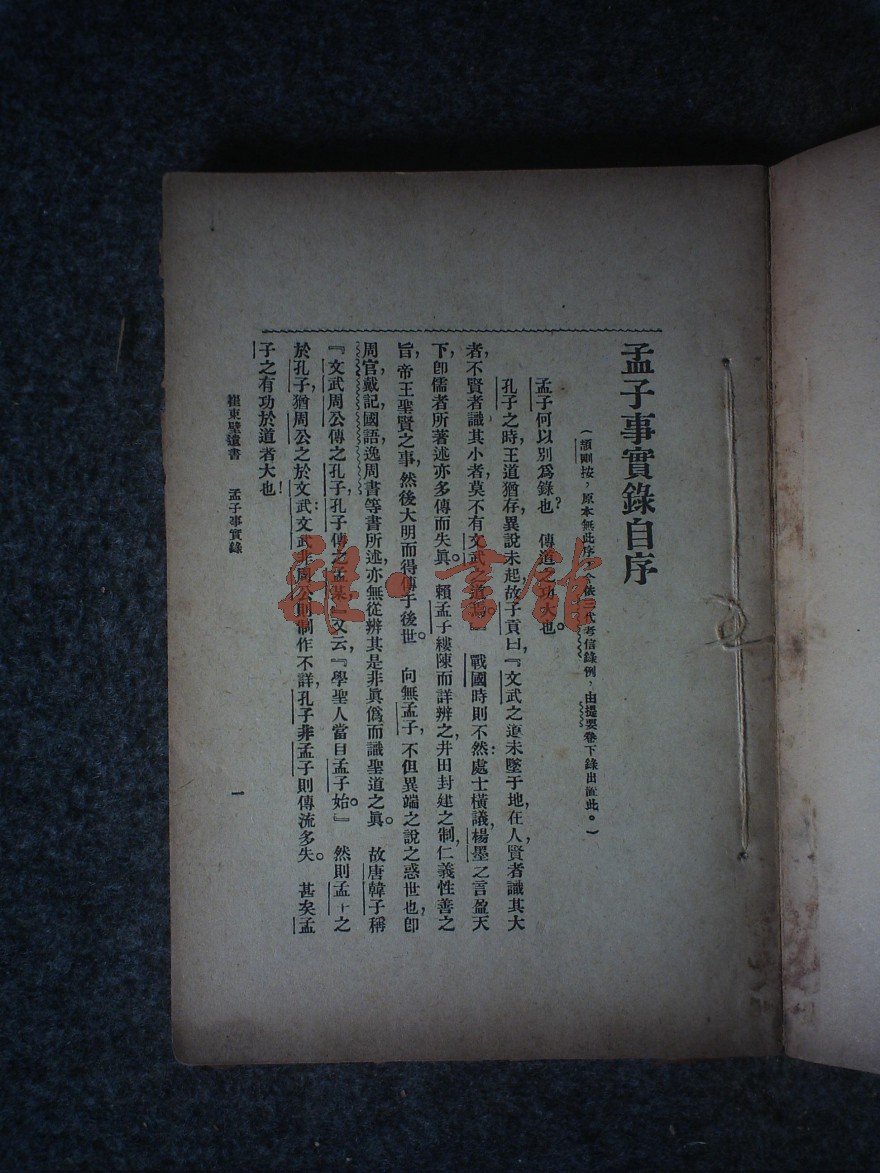 孟子事實錄自序
(頡剛按,原本無此序,今依三代考信錄例,由提要卷下錄出置此。)
孟子何以別爲錄也?傳道之功大也。
孔子之時,王道猶存,異說未起,故子貢曰,『文武之道未墜于地,在人,賢者識其大
者,不賢者識其小者,莫不有文武之道焉』戰國時則不然:處士橫議,楊墨之言盈天
下,卽儒者所著述亦多傳而失眞。賴孟子縷陳而詳辨之,井田封建之制,仁義性善之
旨,帝王聖賢之事,然後大明而得傳于後世。向無孟子,不但異端之說之惑世也,卽
周官戴記國語逸周書等書所述,亦無從辨其是非眞僞而識聖道之眞。故唐韓子稱
『文武周公傳之孔子,孔子傳之孟某』又云,『學聖人當自孟子始。』然則孟子之
於孔子,猶周公之於文武:文武非周公則制作不詳,孔子非孟子則傳流多失。甚矣孟
子之有功於道者大也!
崔東壁遺書 孟子事實錄
一